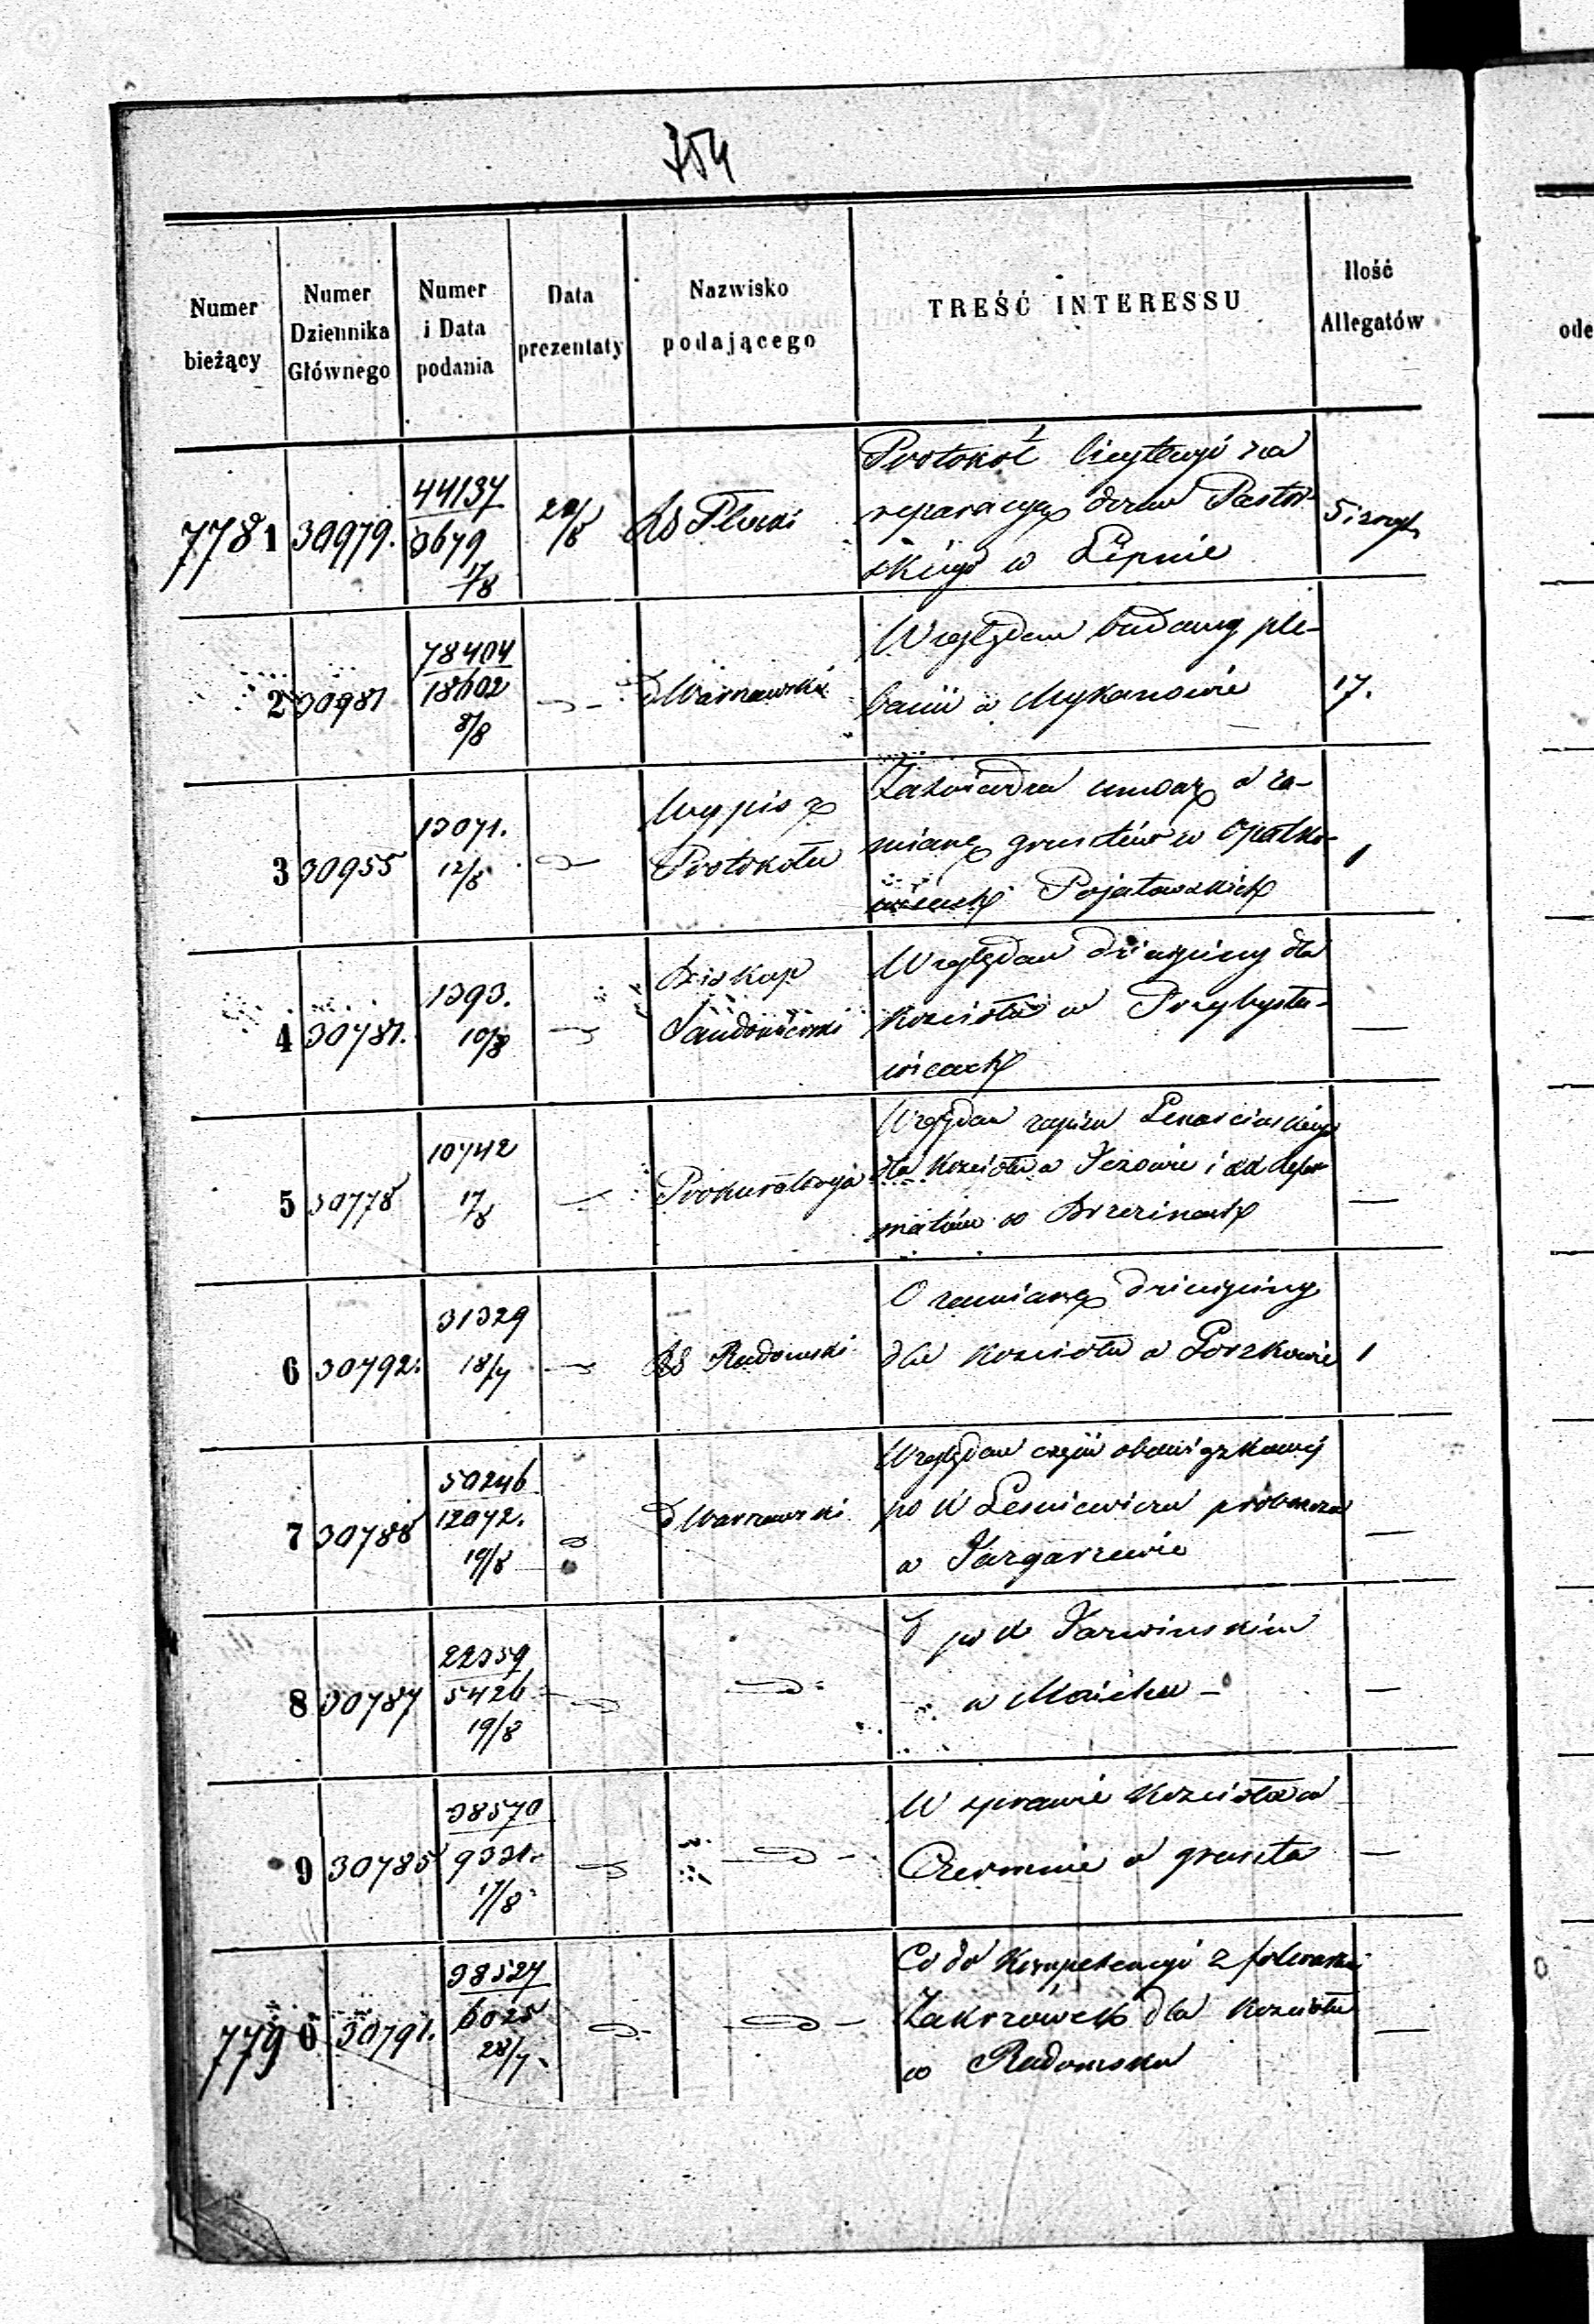 754
Numer bieżący | Numer Dziennika Głównego | Numer i Data podania | Data prezentaty | Nazwisko podającego | TREŚĆ INTERESSU | Ilość Allegatów
ode
7781 | 30979. | 44137 / 3679 17/8 | 20/8 | RG Płocki | Protokół licytacyi na
reparacyę domu Pastor-
skiego w Lipnie
2 | 30981 | 78404 / 18602 8/8 | d Warszawski | Względem budowy ple-
banii w Mykanowie | 17.
3 | 30955 | 13071. 12/8 | Wypis z
Protokółu | Zatwierdza umowę o za-
mianę gruntów w Opatko-
wicach Pojałowskich | 1
4 | 30781. | 1393. 10/8 | Biskup
Sandomierski | Względem dziesięciny dla
kościoła w Przybysła-
wicach | —
5 | 30778 | 10742 17/8 | Prokuratorya | Względem zapisu
dla kościoła w Jeżowie i XX Refor-
matów w Brzezinach | —
6 | 30792. | 31329 18/7 | RG Radomski | O zamianę dziesięciny
dla kościoła w Gorzkowie | 1
7 | 30788 | 50246 / 12072. 19/8 | d Warszawski | Względem części obowiązkowej
po X Leśniewiczu proboszczu
w | —
8 | 30787 | 22359 / 5426 19/8 | po X Karwińskim
w | —
9 | 30785 | 38570 / 9331. 17/8 | W sprawie kościoła w
Czerminie o grunta | —
7790 | 30791. | 38527 / 6025 28/7 | Co do kompetencyi z folwarku
Zakrzówek dla kościoła
w Radomsku | —